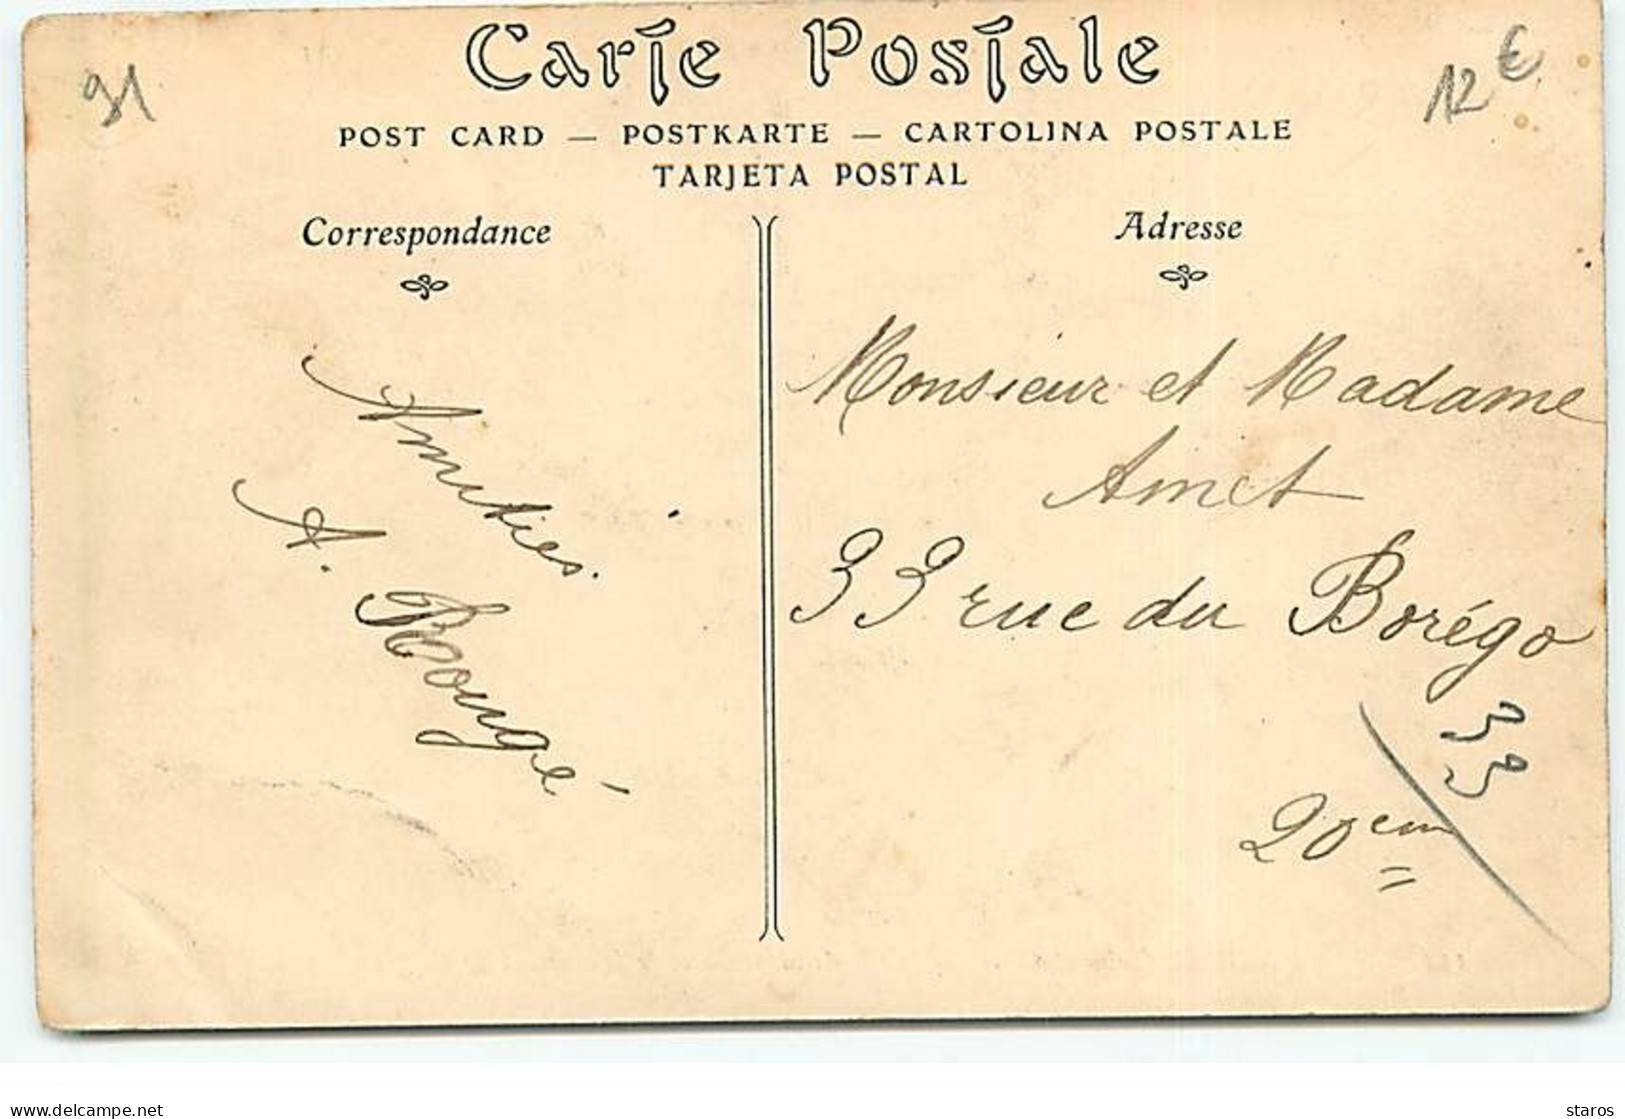 91
12 €
Carte Postale
POST CARD — POSTKARTE — CARTOLINA POSTALE
TARJETA POSTAL
Correspondance
Adresse
Amitiés.
A. Rougé
Monsieur et Madame
Amet
33 rue du Borégo
33
20em
delcampe.net
staros